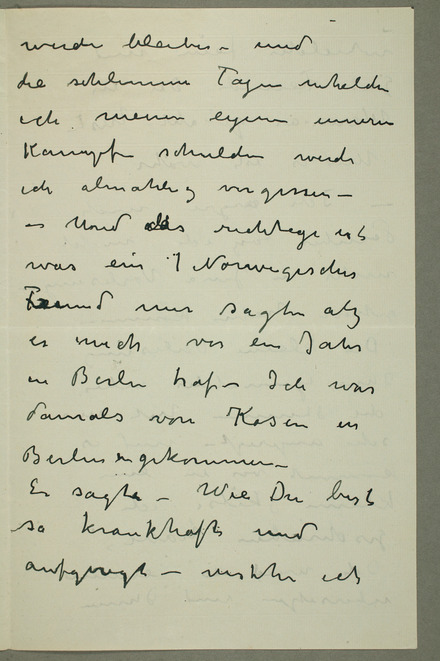 werde bleiben – und
die schlimme Tagen
ich meinen eigenen inneren
Kampfe schulden werde
ich almählig vergessen –
es das richtige ist
was ein Norwegischer
Freund mir sagte als
er mich vor ein Jahr
in Berlin traf – Ich war
damals von Kösen in
Berlin angekommen –
Er sagte – Wie Du bist
so krankhaft und
aufgeregt – ich